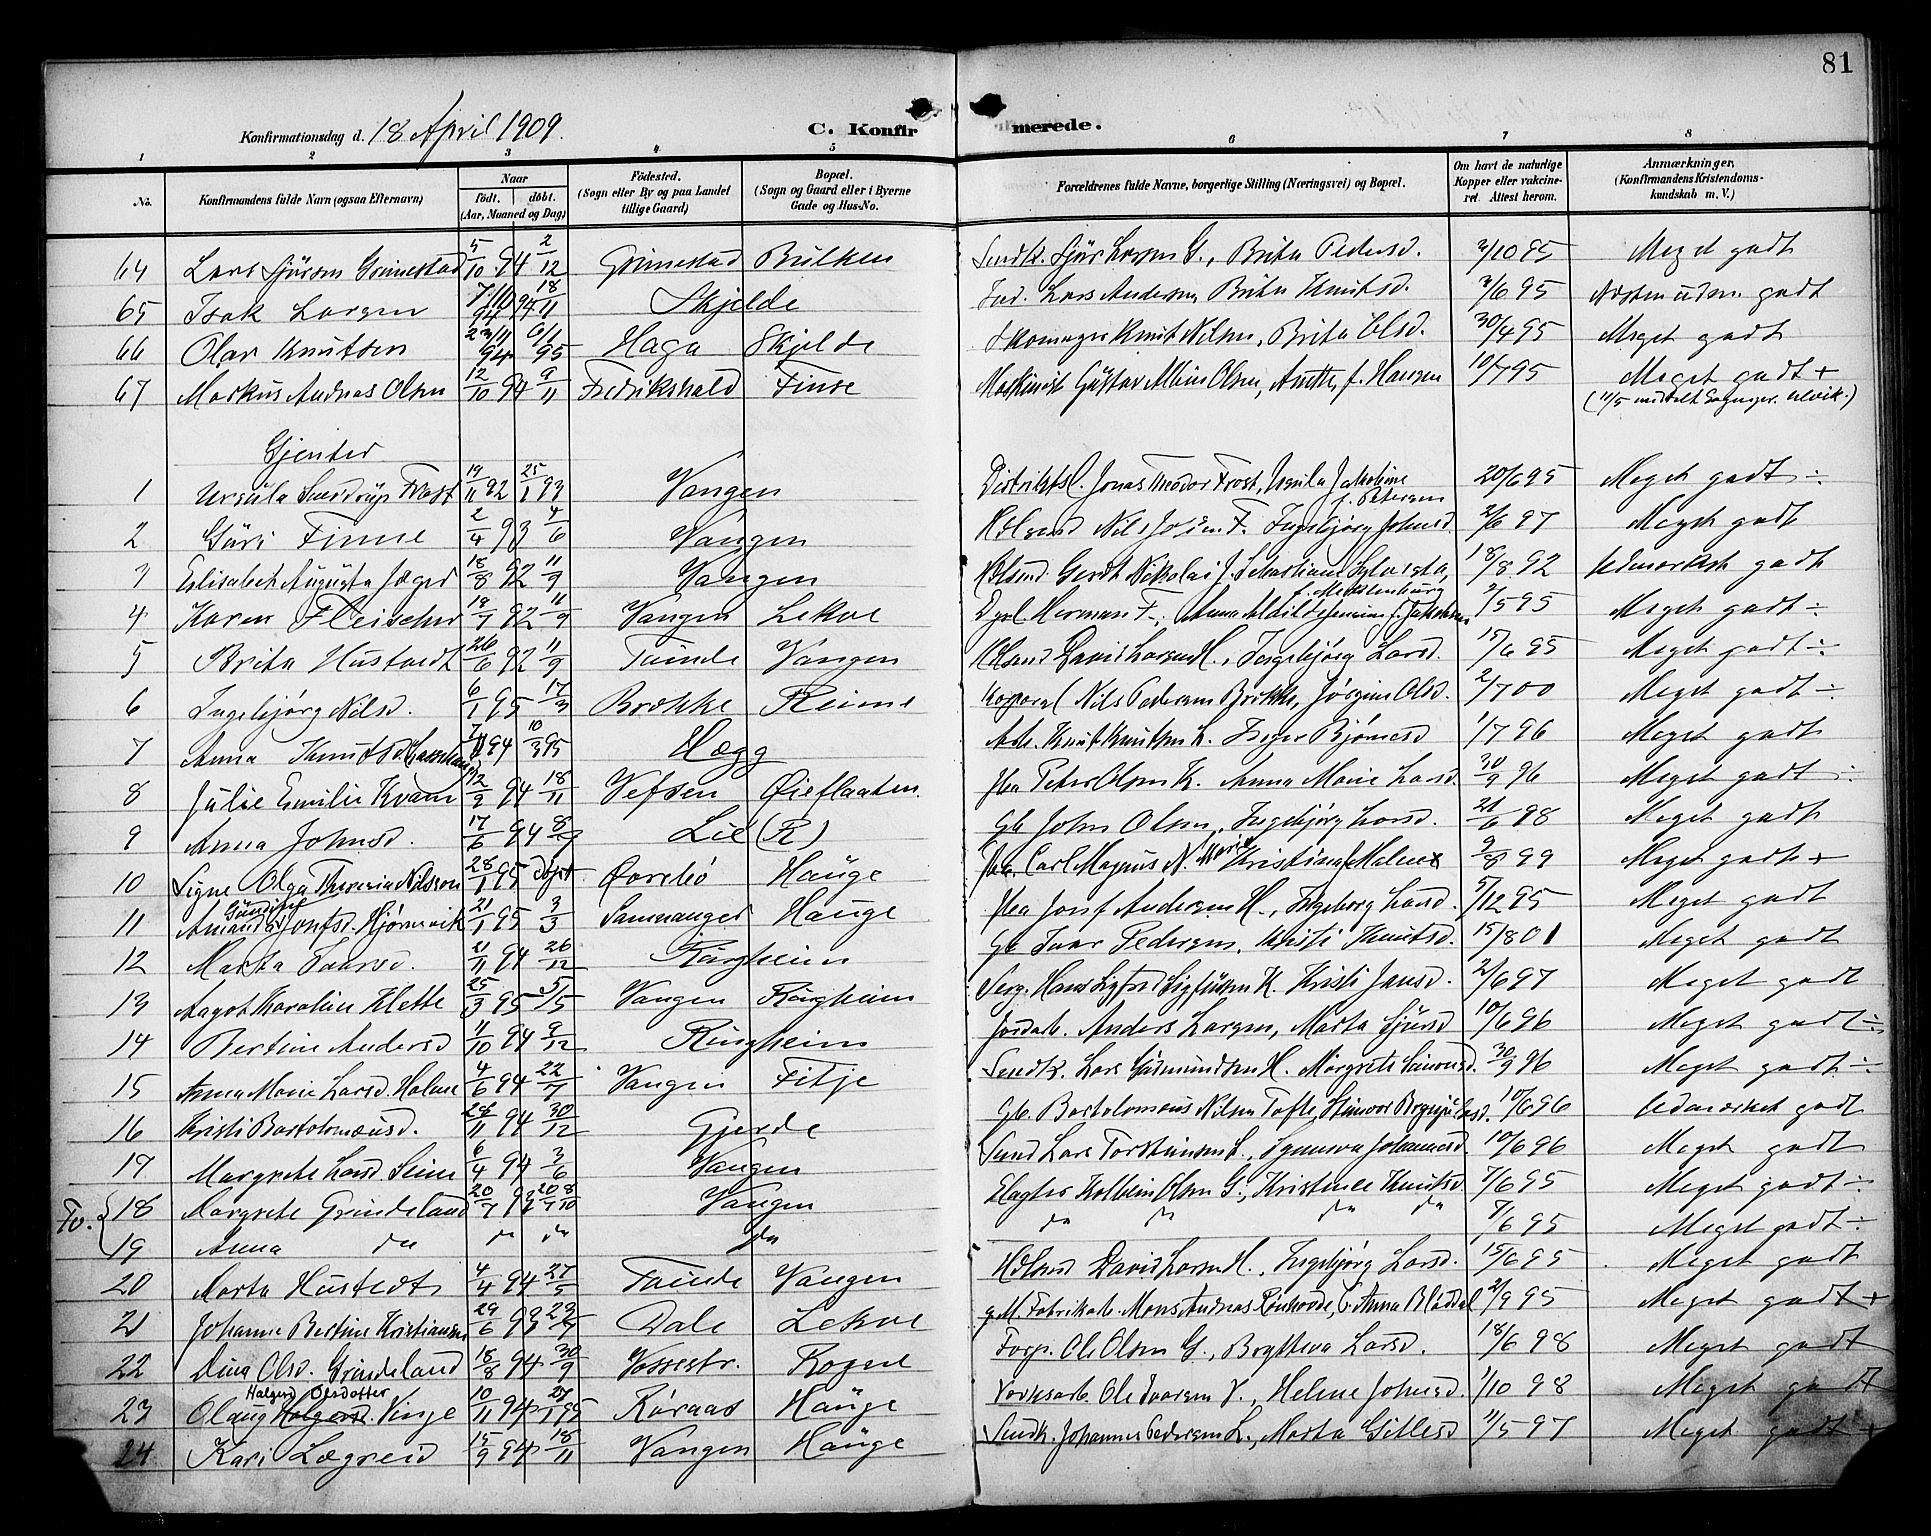 81
Konfirmationsdag d. 18 April 1909.
C. Konfirmerede.
1 2 3 4 5 6 7 8
No. Konfirmandens fulde Navn (ogsaa Efternavn) Naar født. døbt. (Aar, Maaned og Dag) Fødested. (Sogn eller By og paa Landet tillige Gaard) Bopæl. (Sogn og Gaard eller i Byerne Gade og Hus-No. Forældrenes fulde Navne, borgerlige Stilling (Næringsvei) og Bopæl. Om havt de naturlige Kopper eller vakcineret. Attest herom. Anmærkninger, (Konfirmandens Kristendomskundskab m. V.)
64 Lars Sjursen Grimestad 5/10 94 2/12 Grimestad Bulken Sjur Larsen G., Brita Pedersd. 3/10 95 Meget godt
65 Isak Larsen 7/10 94 18/11 Skjelde Lars Andersen, Brita Knutsd. 3/6 95 Næsten uden. godt
66 Olav Knutsen 23/11 94 6/1 95 Haga Skjelde Skomager Knut Nilsen, Brita Olsd. 30/4 95 Meget godt
67 Markus Andreas Olsen 12/10 94 9/11 Fredrikshald Finse Maskinist Gustav Olsen, f. Hansen 10/7 95 Meget godt +
(11/5 meddelt Sognepr. Ulvik.)
Gjenter
1 Ursula Frost 19/11 92 25/1 93 Vangen Distriktsl. Jonas Theodor Frost, Ursula Jakobine f. Petersen 20/6 95 Meget godt ÷
2 Guri Finne 2/4 93 4/6 Vangen Nils F. Ingebjørg Johnsd. 2/6 97 Meget godt
3 Elisabet Augusta Jæger 18/8 92 11/9 Vangen Gerdt Nikolai J. Sebastiane Sylvesta, f. Meklenburg 18/8 92 Udmærket godt
4 Karen Fleischer 19/7 92 11/9 Vangen Lekve Herman F., Anna f. Jakobsen 2/5 95 Meget godt ÷
5 Brita Hustedt 26/6 92 11/9 Tvinde Vangen David Larsen H., Ingebjørg Larsd. 15/6 95 Meget godt ÷
6 Ingebjørg Nilsd. 6/1 95 17/3 Brække Reime Korporal Nils Pedersen Brække, Jørgine Olsd. 2/7 00 Meget godt ÷
7 Anna Knutsd. 94 10/3 95 Hægg Arb. Knut Knutsen L. Inger Bjørnsd 1/7 96 Meget godt
8 Julie Emilie Kvam 12/9 94 18/11 Vefsen Øieflaaten Peter Olsen K. Anna Marie Larsd. 30/9 96 Meget godt ÷
9 Anna Johnsd. 17/6 94 Lie (R) Gb John Olsen, Ingebjørg Larsd. 21/6 98 Meget godt
10 Signe Olga Theresia Nilsson 28/1 95 døpt Ørebø Hauge Carl Magnus N. Marie Kristina f. Malm 2/8 99 Meget godt +
11 Amanda Gundine Josefsd. Hjørnevik 21/1 95 3/3 Samnanger Hauge Josef Andersen H., Ingeborg Larsd. 5/12 95 Meget godt
12 Marta Ivarsd. 21/11 94 26/12 Ringheim Gb Ivar Pedersen, Kristi Knutsd. 15/8 01 Meget godt
13 Aagot Karoline Klette 25/3 95 5/5 Vangen Ringheim Serg. Hans Sigfusen K. Kristi Jansd. 2/6 97 Meget godt
14 Bertine Andersd 11/10 94 2/12 Ringheim Jordarb. Anders Larsen, Marta Sjursd 10/6 96 Meget godt ÷
15 Anna Marie Larsd. Holme 4/6 94 22/7 Vangen Fitje Smedk. Lars Gudmundsen H. Margrete Simonsd. 30/9 96 Meget godt ÷
16 Kristi Bartolomeusd. 28/11 94 30/12 Gjerde Gb. Bartolomeus Nilsen Tofte, Steinvor Brynjulvsd. 10/6 96 Udmærket godt
17 Margrete Larsd. Seim 6/4 94 3/6 Vangen Smed Lars Torsteinsen L., Synneva Johannesd. 10/6 96 Meget godt
Tv. { 18 Margrete Grindeland 20/7 93 Vangen Slagter Kolbein Olsen G., Kristense Knutsd. 7/6 95 Meget godt ÷
19 Anna do do do do do do do do 7/6 95 Meget godt ÷
20 Marta Hustedt 4/4 94 27/5 Tvinde Vangen David Larsen H., Ingebjørg Larsd. 15/6 95 Meget godt
21 Johanne Bertine Kristiansen 29/6 93 Dale Lekve Fabrikarb. Mons Andreas Rønhovde, Anna Bløddal 21/9 95 Meget godt +
22 Dina Olsd. Grindeland 18/8 94 30/9 Vossestr. Rogne Forp. Ole Olsen G., Brytteva Larsd. 18/6 98 Meget godt
23 Olaug Halgerd Olsdotter Vinje 10/11 94 27/1 95 Røraas Hauge Ole Ivarsen V., Helene Johnsd. 1/10 98 Meget godt
24 Kari Lægreid 15/9 94 18/11 Vangen Hauge Smedk. Johannes Pedersen L., Marta Gitlesd 11/5 97 Meget godt +